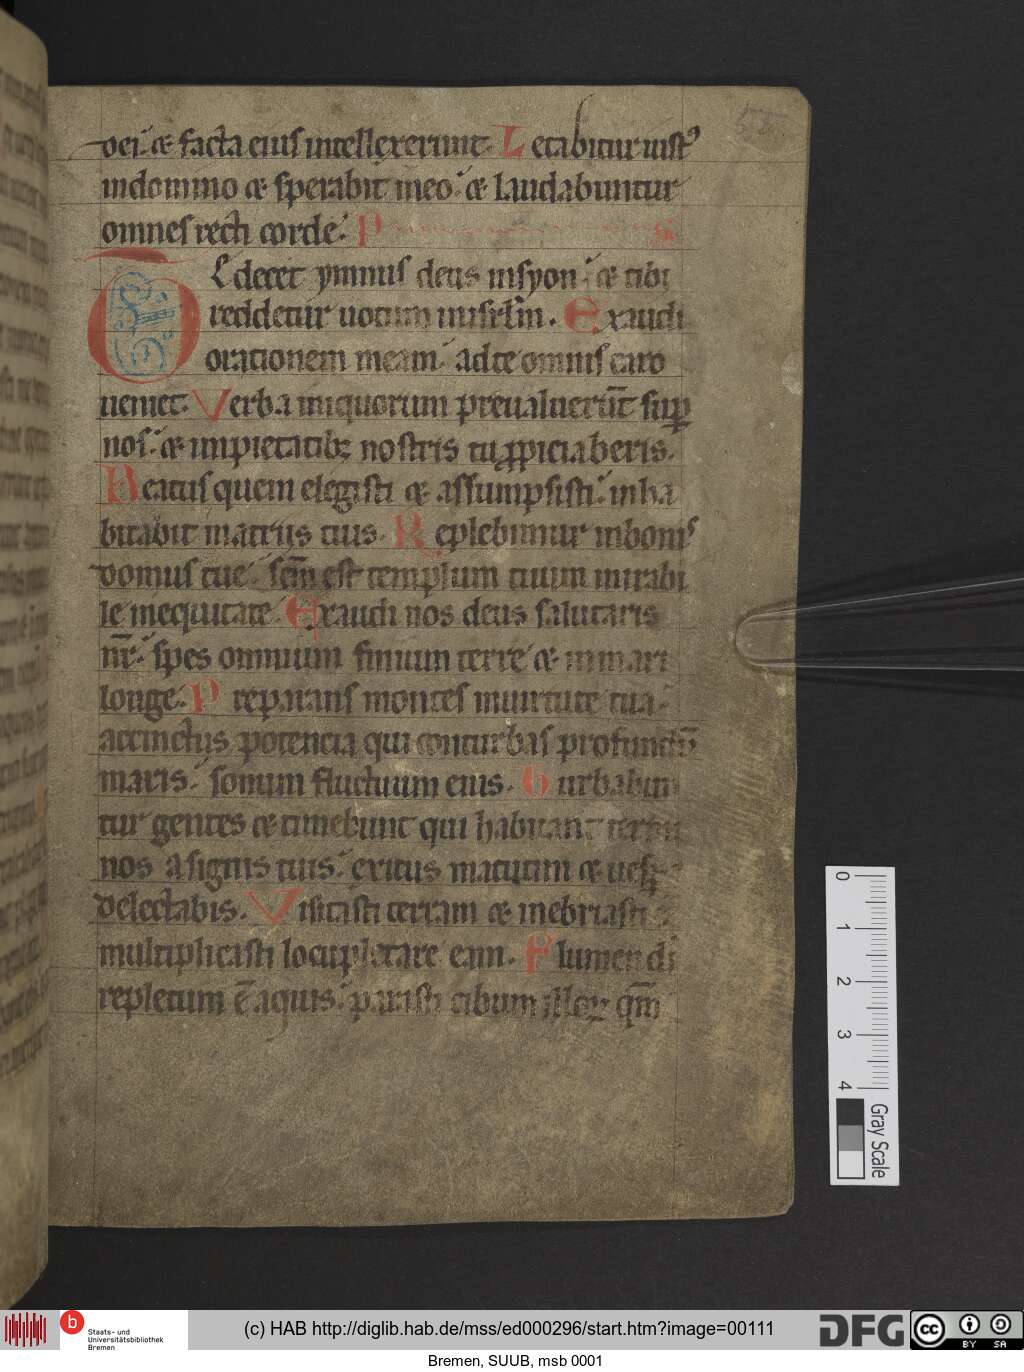 dei. ⁊ facta eius intellexerunt. Letabitur iust᾿
indomino ⁊ sperabit ineo. ⁊ laudabuntur
omnes recti corde. P
TE decet ymnus deus insyon. ⁊ tibi
reddetur uotum inisrl̄m. Exaudi
orationem meam. adte omnis caro
ueniet. Verba iniquorum preualuerūt sup̄
nos. ⁊ impietatib; nostris tu ꝓpiciaberis.
Beatus quem elegisti ⁊ assumpsisti. inha
bitabit inatrijs tuis. Replebimur inbonis
domus tue. sc̄m est templum tuum mirabi
le inequitate. Exaudi nos deus salutaris
nr̄. spes omnium finium terre ⁊ inmari
longe. Preparans montes inuirtute tua.
accinctus potencia qui conturbas profundū
maris. sonum fluctuum eius. Turbabun
tur gentes ⁊ timebunt qui habitant termi
nos asignis tuis. exitus matutini ⁊ uesp̄
delectabis. Visitasti terram ⁊ inebriasti
multiplicasti locupletare eam. Flumen di
repletum ē aquis. parasti cibum illoꝝ qm̄
0 1 2 3 4
Gray Scale
b
Staats- und
Universitätsbibliothek
Bremen
(c) HAB http://diglib.hab.de/mss/ed000296/start.htm?image=00111
DFG
cc BY SA
Bremen, SUUB, msb 0001